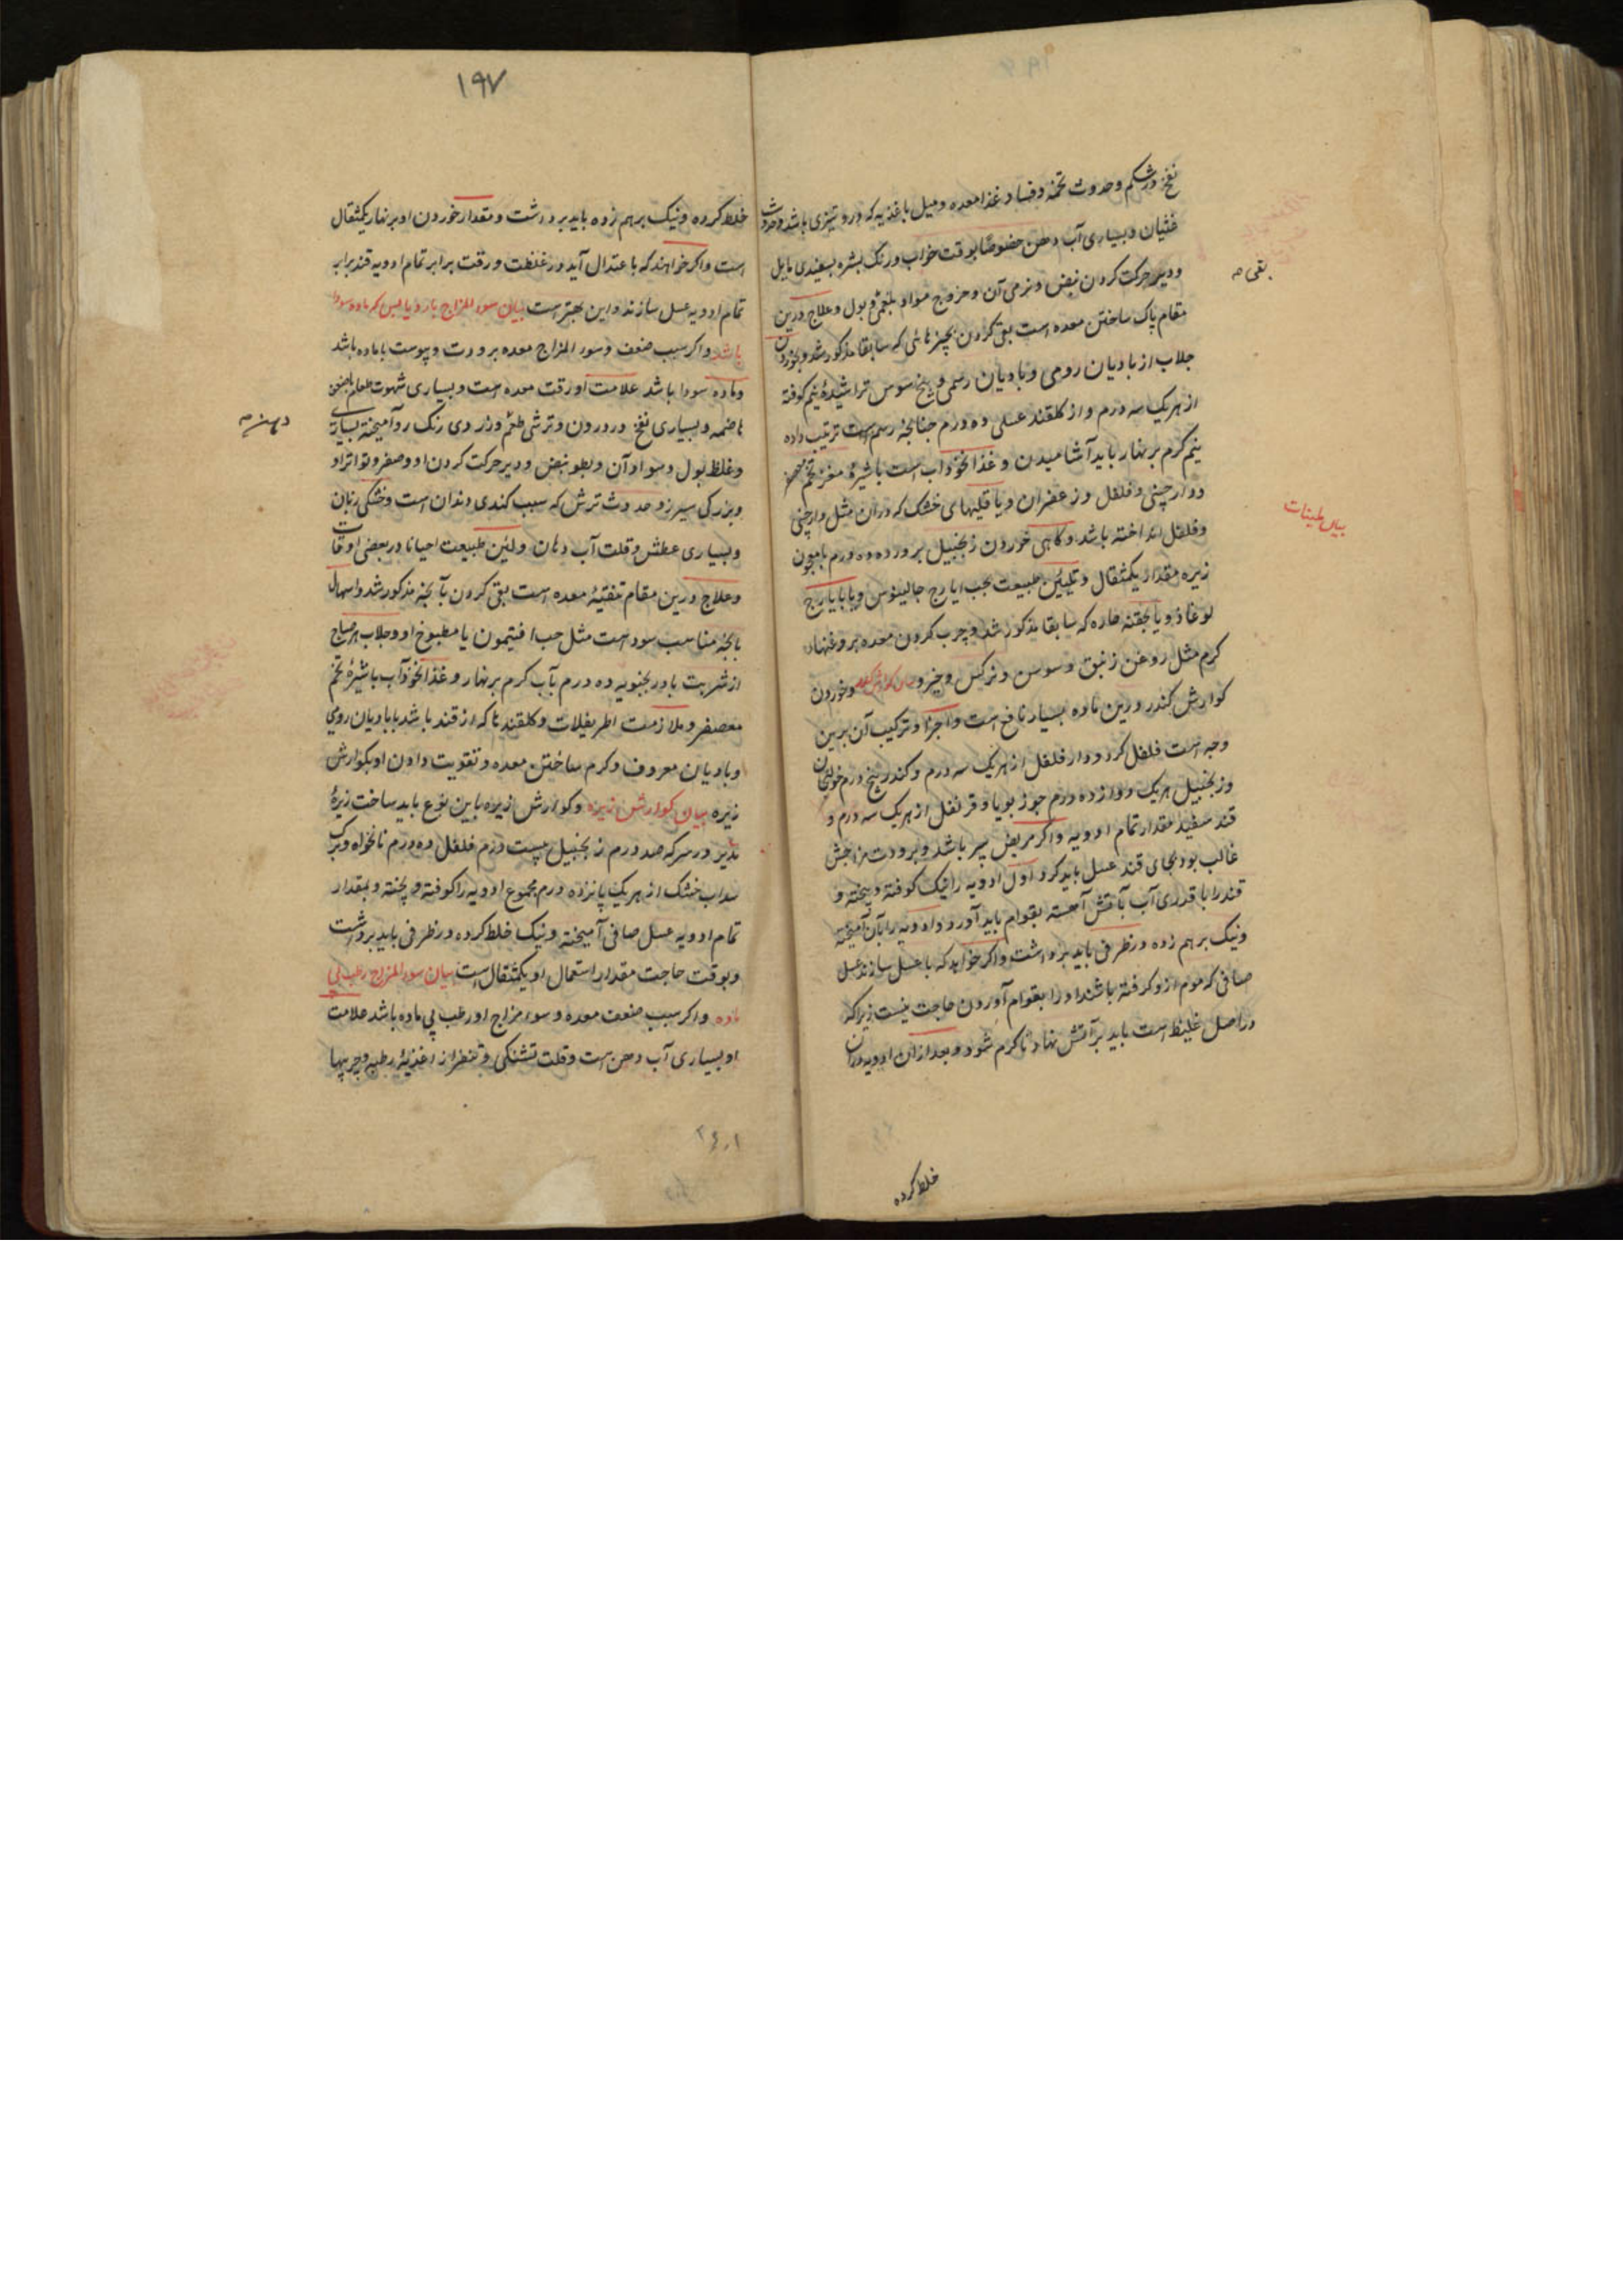 نفخ در شکم و حدوث تخمه و فساد غذا معده و میل باغذیه که درو تیزی باشد و حدوث
غثیان و بسیاری آب دهن خصوصًا بوقت خواب و رنگ بشره بسفیدی مایل
و دیر حرکت کردن نبض و نرمی آن و خروج مواد بلغمی و بول و علاج درین
بقی صه
مقام پاک ساختن معده است بقی کردن بچیزهائی که سابقا مذکور شد و بخوردن
جلاب از بادیان رومی و بادیان رسمی و بیخ سوس تراشیدهٔ نیم کوفته
از هر یک سه درم و از گلقند عسلی ده درم چنانچه رسم است ترتیب داده
نیم گرم بر نهار باید آشامیدن و غذا نخوداب است با شیرهٔ مغز تخم
و دارچینی و فلفل و زعفران و یا قلیهای خشک که در آن مثل دارچینی
بیان طینات
و فلفل انداخته باشد و گاهی خوردن زنجبیل پرورده ده درم با معجون
زیره مقدار یکمثقال و تلیین طبیعت بحب ایارج جالینوس و یا بایارج
لوغاذیا و یا بحقنه حاره که سابقا مذکور شد و چرب کردن معده بروغنهای
گرم مثل روغن زنبق و سوسن و نرگس و خیرو بیان کوارش کندر و خوردن
کوارش کندر درین ماده بسیار نافع است و اجزا و ترکیب آن برین
وجه است فلفل گرد و دار فلفل از هر یک سه درم و کندر پنج درم خولنجان
و زنجبیل هر یک دوازده درم جوز بویا و قرنفل از هر یک سه درم و
قند سفید مقدار تمام ادویه و اگر مریض پیر باشد و برودت مزاجش
غالب بود بجای قند عسل باید کرد اول ادویه را نیک کوفته و بیخته و
قند را با قدری آب بآتش آهسته بقوام باید آورد و ادویه را بآن آمیخته
و نیک برهم زده در ظرفی باید برداشت و اگر خواهد که با عسل سازند عسل
صافی که موم ازو گرفته باشند او را بقوام آوردن حاجت نیست زیرا که
در اصل غلیظ است باید بر آتش نهاد تا گرم شود و بعد از آن ادویه در آن
خلط کرده
۱۹۷
خلط کرده و نیک برهم زده باید برداشت و مقدار خوردن او بر نهار یکمثقال
است و اگر خواهند که با عتدال آید در غلظت و رقت برابر تمام ادویه قند برابر
تمام ادویه عسل سازند و این بهتر است بیان سوء المزاج بارد یابس که ماده سودا
باشد و اگر سبب ضعف و سوء المزاج معده برودت و یبوست با ماده باشد
و ماده سودا باشد علامت او رقت معده است و بسیاری شهوت طعام با ضعف
هاضمه و بسیاری نفخ در درون و ترشی طعم و زردی رنگ رو آمیخته بسیاهی
دهن صه
و غلظ بول و سواد آن و بطو نبض و دیر حرکت کردن او و صغر و تواتر او
و بزرگی سپرز و حدوث ترش که سبب کندی دندان است و خشکی زبان
و بسیاری عطش و قلت آب دهان و لین طبیعت احیانا در بعضی اوقات
و علاج درین مقام تنقیهٔ معده است بقی کردن بآنچه مذکور شد و اسهال
بآنچه مناسب سود است مثل حب افتیمون یا مطبوخ او و جلاب هر صباح
از شربت بادرنجبویه ده درم بآب گرم بر نهار و غذا نخوداب با شیرهٔ تخم
معصفر و ملازمت اطریفلات و گلقندها که از قند باشد با بادیان رومی
و بادیان معروف و گرم ساختن معده و تقویت دادن او بکوارش
زیره بیان کوارش زیره و کوارش زیره باین نوع باید ساخت زیرهٔ
تدبیر در سرکه صد درم زنجبیل بیست درم فلفل ده درم نانخواه و برگ
سداب خشک از هر یک پانزده درم مجموع ادویه را کوفته و بیخته و بمقدار
تمام ادویه عسل صافی آمیخته و نیک خلط کرده در ظرفی باید برداشت
و بوقت حاجت مقدار استعمال او یکمثقال است بیان سوء المزاج رطب بی
ماده و اگر سبب ضعف معده و سوء مزاج او رطب بی ماده باشد علامت
او بسیاری آب دهن است و قلت تشنگی و تنفر از اغذیهٔ رطبه و چربیها